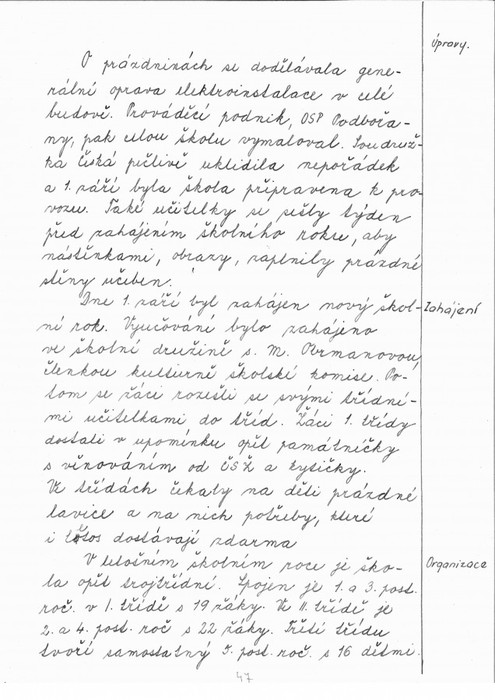 Úpravy.
O prázdninách se dodělávala gene-
rální oprava elektroinstalace v celé
budově. Prováděcí podnik, OSP Podbořa-
ny, pak celou školu vymaloval. Soudruž-
ka Čiská pečlivě uklidila nepořádek
a 1. září byla škola připravena k pro-
vozu. Také učitelky se sešly týden
před zahájením školního roku, aby
nástěnkami, obrazy, zaplnily prázdné
stěny učeben.
Dne 1. září byl zahájen nový škol-
Zahájení
ní rok. Vyučování bylo zahájeno
ve školní družině s. M. Brmanovou,
členkou kulturně školské komise. Po-
tom se žáci rozešli se svými třídní-
mi učitelkami do tříd. Žáci 1. třídy
dostali v upomínku opět památníčky
s věnováním od ČSŽ a kytičky.
Ve třídách čekaly na děti prázdné
lavice a na nich potřeby, které
i letos dostávají zdarma
V letošním školním roce je ško-
Organizace
la opět trojtřídní. Spojen je 1. a 3. post.
roč. v I. třídě s 19 žáky. Ve II. třídě je
2. a 4. post. roč s 22 žáky. Třetí třídu
tvoří samostatný 5. post. roč. s 16 dětmi.
47